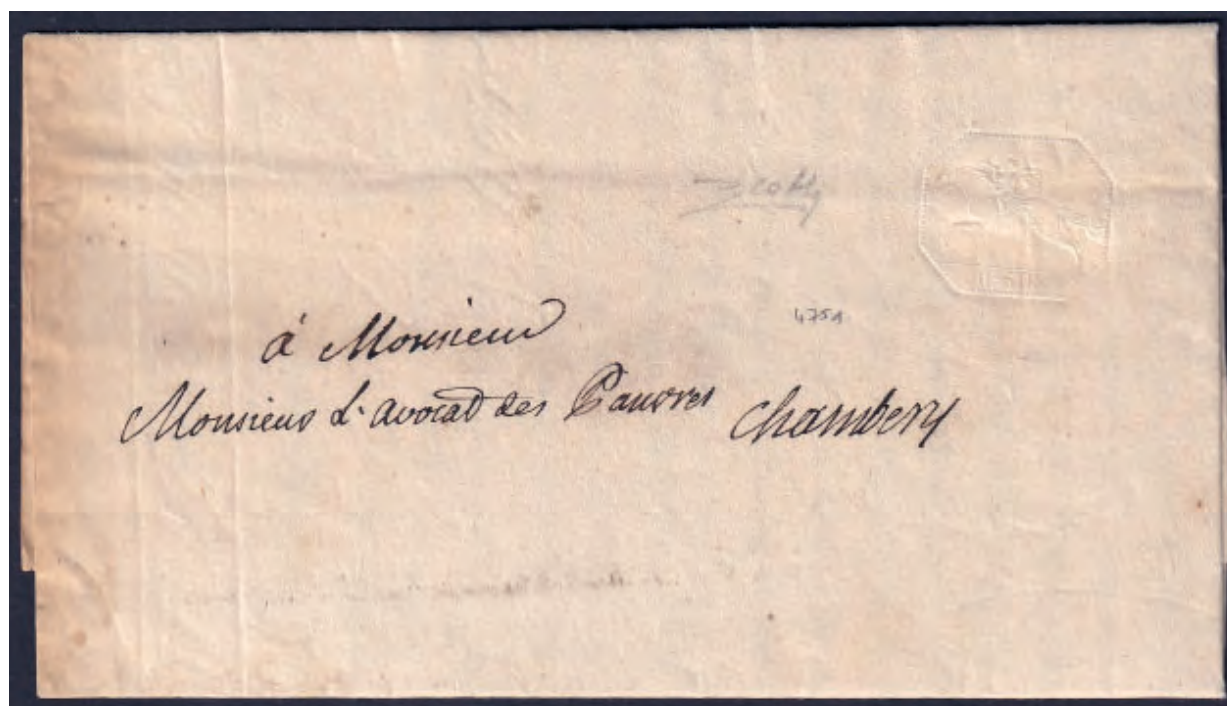 à Monsieur
4751
Monsieur L'avocat des Pauvres Chambery